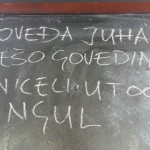 OVEĐA JUHA
EŠO GOVEDIN
NICELI U TOĆ
NGUL